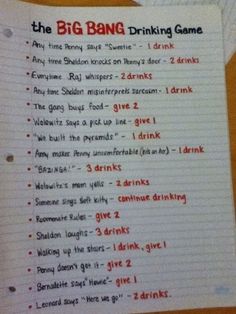 the BiG BANG Drinking Game
Any time Penny says "Sweetie" - 1 drink
Any time Sheldon knocks on Penny's door - 2 drinks
Everytime Raj whispers - 2 drinks
Any time Sheldon misinterprets sarcasm - 1 drink
The gang buys food - give 2
Wolowitz says a pick up line - give 1
"We built the pyramids" - 1 drink
Amy makes Penny uncomfortable (hits on her) - 1 drink
"BAZINGA!" - 3 drinks
Wolowitz's mom yells - 2 drinks
Someone sings Soft kitty - continue drinking
Roommate Rules - give 2
Sheldon laughs - 3 drinks
Walking up the stairs - 1 drink, give 1
Penny doesn't get it - give 2
Bernadette says "Howie" - give 1
Leonard says "Here we go" - 2 drinks